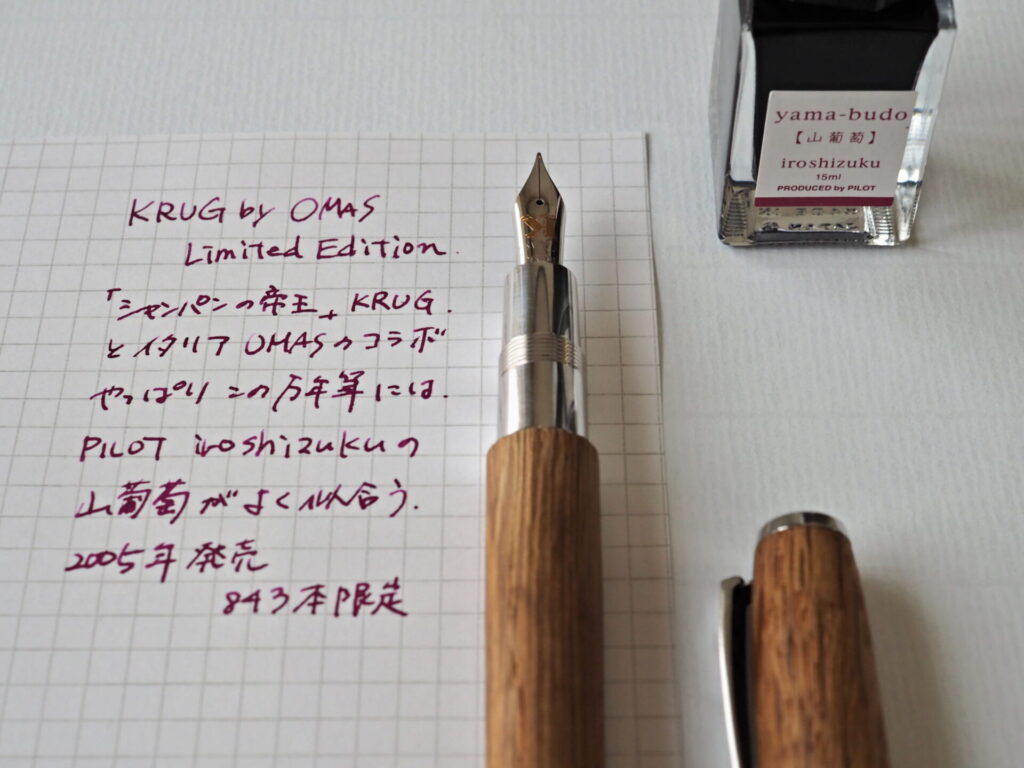 KRUG by OMAS
Limited Edition.
「シャンパンの帝王」KRUG.
とイタリア OMASのコラボ
やっぱりこの万年筆には.
PILOT iroshizukuの
山葡萄がよく似合う.
2005年発売
843本限定
yama-budo
【山葡萄】
iroshizuku
15ml
PRODUCED by PILOT